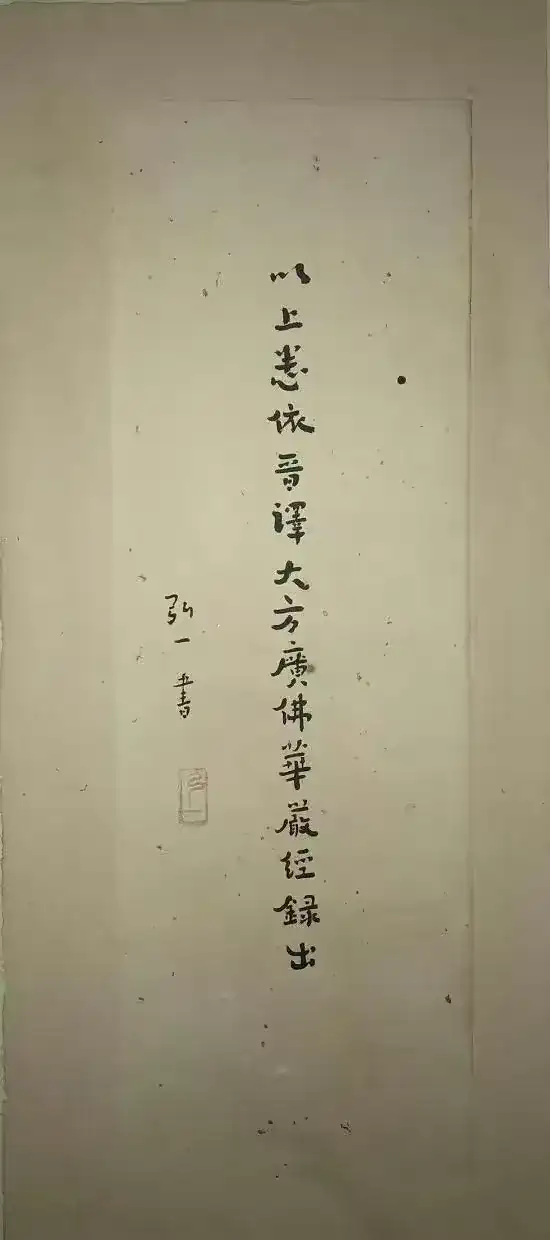 以上悉依晉譯大方廣佛華嚴經錄出
弘一書